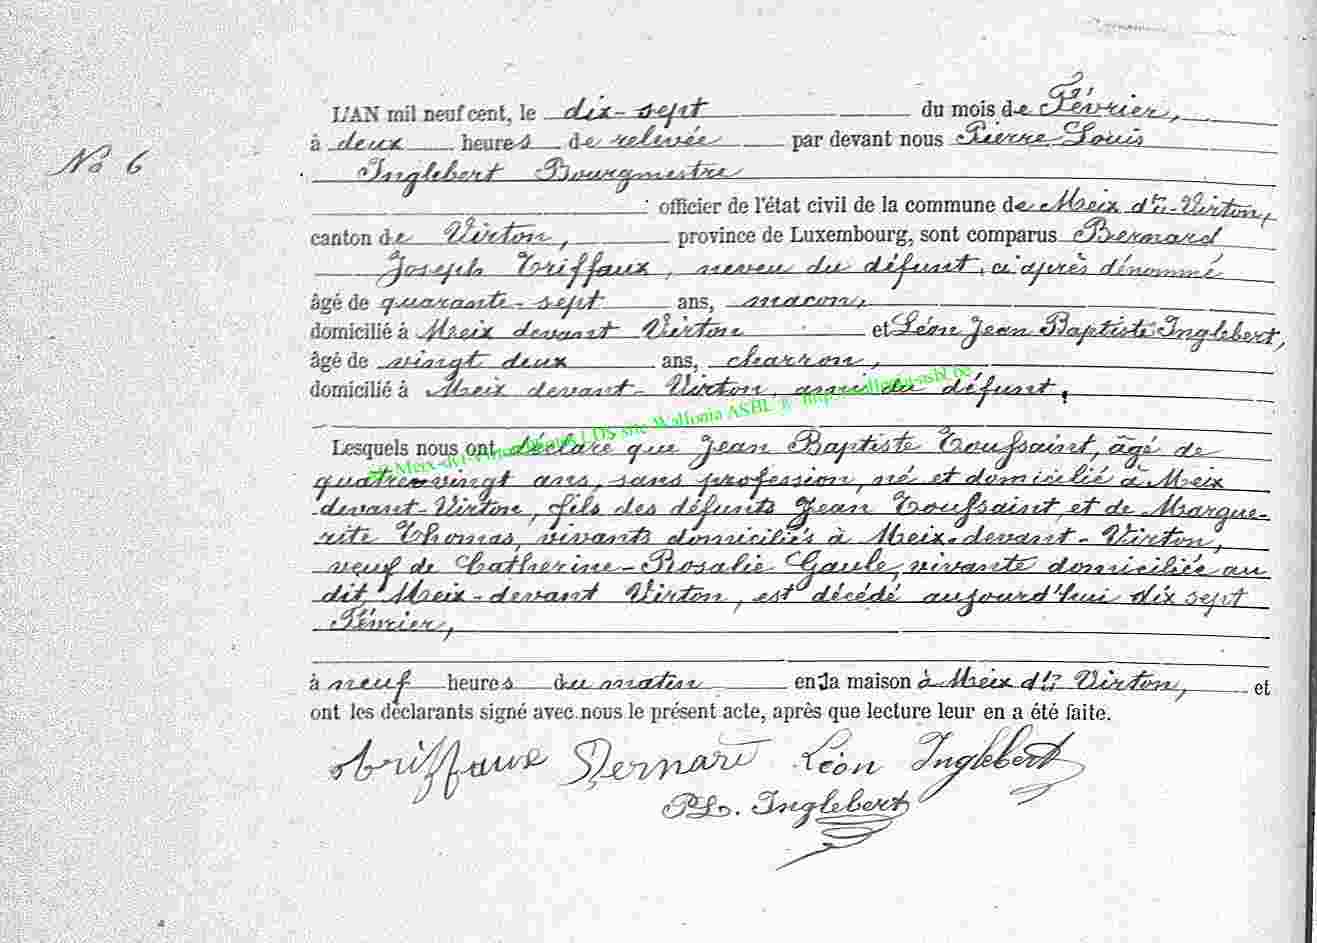 L'AN mil neuf cent, le dix-sept du mois de Février,
No 6
à deux heures de relevée par devant nous Pierre Louis
Inglebert Bourgmestre
officier de l'état civil de la commune de Meix dnt-Virton,
canton de Virton, province de Luxembourg, sont comparus Bernard
Joseph Triffaux, neveu du défunt, ci après dénommé
âgé de quarante-sept ans, macon,
domicilié à Meix devant Virton et Léon Jean Baptiste Inglebert,
âgé de vingt deux ans, charron,
domicilié à Meix devant-Virton, ami du défunt,
Lesquels nous ont déclaré que Jean Baptiste Toussaint, âgé de
quatre-vingt ans, sans profession, né et domicilié à Meix
devant-Virton, fils des défunts Jean Toussaint, et de Margue-
rite Thomas, vivants domiciliés à Meix-devant-Virton,
veuf de Catherine-Rosalie Gaule, vivante domiciliée au
dit Meix-devant Virton, est décédé aujourd'hui dix sept
Février,
à neuf heures du matin en la maison à Meix dnt Virton, et
ont les déclarants signé avec nous le présent acte, après que lecture leur en a été faite.
Triffaux Bernard Léon Inglebert
PL. Inglebert